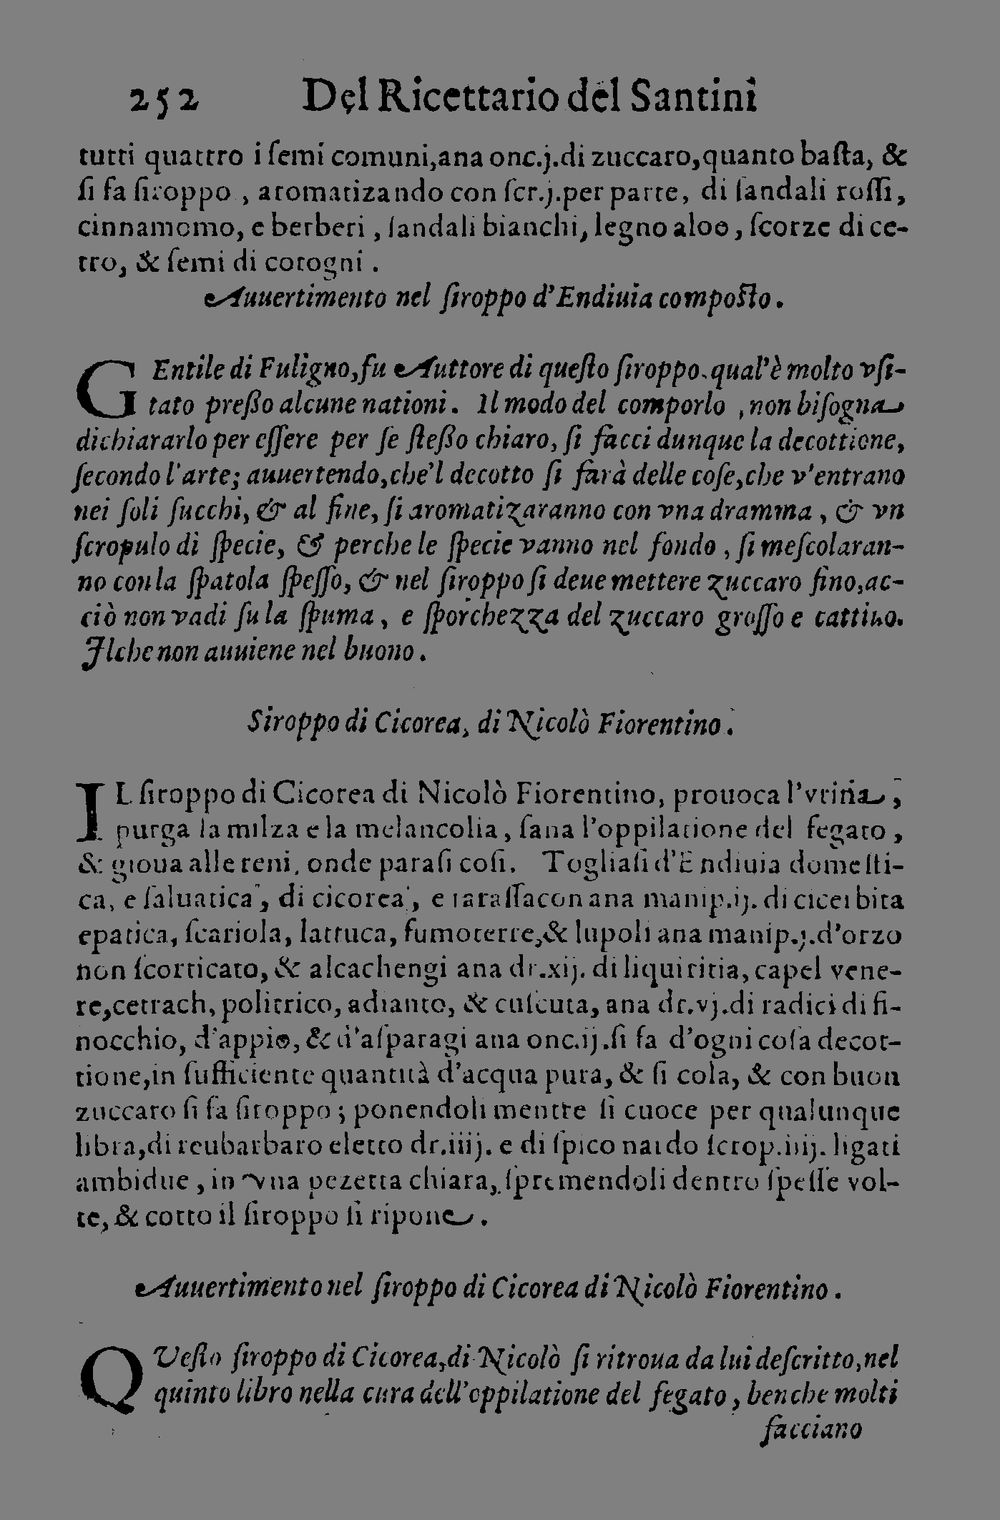 252 Del Ricettario del Santini
tutti quattro i ſemi comuni,ana onc.j.di zuccaro,quanto baſta, &
ſi fa ſiroppo , aromatizando con ſcr.j.per parte, di ſandali roſſi,
cinnamomo, e berberi , ſandali bianchi, legno aloe , ſcorze di ce-
tro, & ſemi di cotogni .
Auuertimento nel ſiroppo d'Endiuia compoſto .
GEntile di Fuligno,fu Auttore di queſto ſiroppo.qual'è molto vſi-
tato preßo alcune nationi . Il modo del comporlo , non biſogna
dichiararlo per eſſere per ſe ſteßo chiaro, ſi facci dunque la decottione,
ſecondo l'arte; auuertendo,che'l decotto ſi farà delle coſe,che v'entrano
nei ſoli ſucchi, & al fine, ſi aromatizaranno con vna dramma , & vn
ſcropulo di ſpecie, & perche le ſpecie vanno nel fondo , ſi meſcolaran-
no con la ſpatola ſpeſſo, & nel ſiroppo ſi deue mettere zuccaro fino,ac-
ciò non vadi ſu la ſpuma , e ſporchezza del zuccaro groſſo e cattiuo.
Ilche non auuiene nel buono .
Siroppo di Cicorea, di Nicolò Fiorentino .
IL ſiroppo di Cicorea di Nicolò Fiorentino, prouoca l'vrina ,
purga la milza e la melancolia , ſana l'oppilatione del fegato ,
& gioua alle reni, onde paraſi coſi. Togliaſi d'Endiuia domeſti-
ca, e ſaluatica , di cicorea , e taraſſacon ana manip.ij. di cicerbita
epatica, ſcariola, lattuca, fumoterre,& lupoli ana manip.j.d'orzo
non ſcorticato, & alcachengi ana dr.xij. di liquiritia, capel vene-
re,cetrach, politrico, adianto, & cuſcuta, ana dr.vj.di radici di fi-
nocchio, d'appio, & d'aſparagi ana onc.ij.ſi fa d'ogni coſa decot-
tione,in ſufficiente quantità d'acqua pura, & ſi cola, & con buon
zuccaro ſi fa ſiroppo ; ponendoli mentre ſi cuoce per qualunque
libra,di reubarbaro eletto dr.iiij. e di ſpico nardo ſcrop.iiij. ligati
ambidue , in vna pezetta chiara, ſpremendoli dentro ſpeſſe vol-
te, & cotto il ſiroppo ſi ripone .
Auuertimento nel ſiroppo di Cicorea di Nicolò Fiorentino .
QVeſto ſiroppo di Cicorea,di Nicolò ſi ritroua da lui deſcritto,nel
quinto libro nella cura dell'oppilatione del fegato , benche molti
facciano